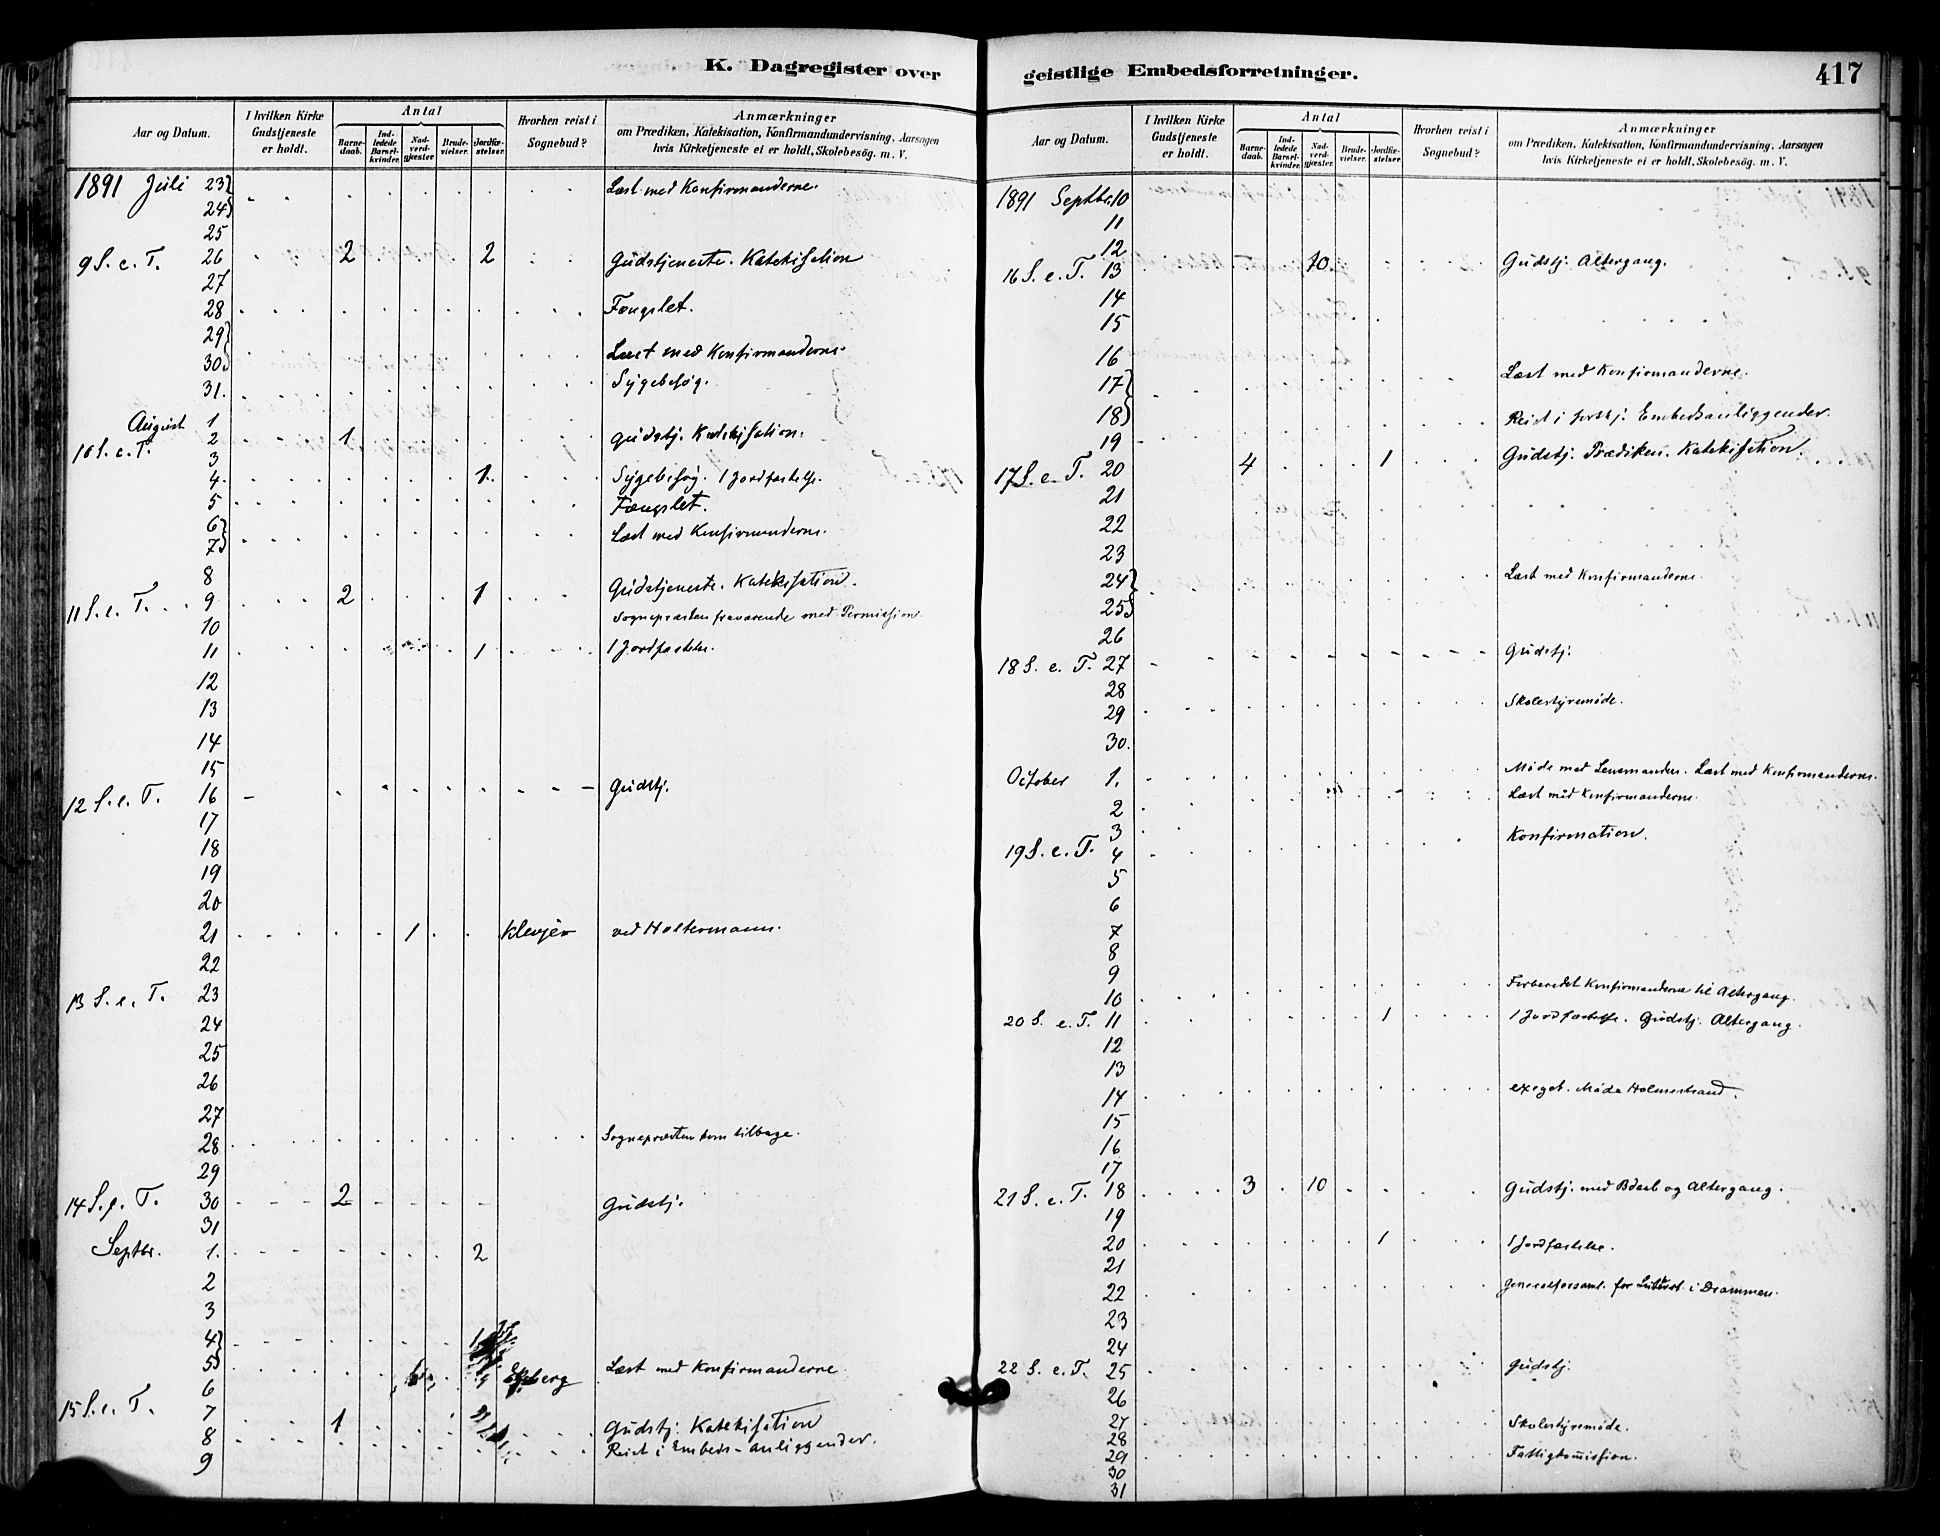 K. Dagregister over
Aar og Datum.
I hvilken Kirke Gudstjeneste er holdt.
Antal
Barne-daab.
Ind-ledede Barsel-kvinder.
Nad-verd-gjæster
Brude-vielser.
Jordfæ-stelser
Hvorhen reist i Sognebud?
Anmærkninger
om Prædiken, Katekisation, Konfirmandundervisning, Aarsagen
hvis Kirketjeneste ei er holdt, Skolebesøg. m. V.
1891 Juli 23 Læst med Konfirmanderne.
24
25
9 S. e. T. 26 2 2 Gudstjeneste. Katekisation
27
28 Fængslet.
29
30 Læst med Konfirmanderne.
31. Sygebesøg.
August 1
10 S. e. T. 2 1 Gudstj. Katekisation.
3
4. 1. Sygebesøg. 1 Jordfæstelse.
5 Fængslet.
6
7 Læst med Konfirmanderne.
8
11 S. e. T. 9 2 1 Gudstjeneste. Katekisation.
10 Sognepræsten fraværende med Permission
11 1 1 Jordfæstelse.
12
13
14
15
12 S. e. T. 16 Gudstj.
17
18
19
20
21 1 Klevjer ved Holtermann.
22
13 S. e. T. 23
24
25
26
27
28 Sognepræsten kom tilbage.
29
14 S. e. T. 30 2 Gudstj.
31
Septbr. 1. 2
2
3
4
5 Læst med Konfirmanderne
6
15 S. e. T. 7 1 Gudstj. Katekisation
8 Reist i Embeds-anliggender.
9
geistlige Embedsforretninger.
417
Aar og Datum.
I hvilken Kirke Gudstjeneste er holdt.
Antal
Barne-daab.
Ind-ledede Barsel-kvinder.
Nad-verd-gjæster
Brude-vielser.
Jordfæ-stelser
Hvorhen reist i Sognebud?
Anmærkninger
om Prædiken, Katekisation, Konfirmandundervisning, Aarsagen
hvis Kirketjeneste ei er holdt, Skolebesøg. m. V.
1891 Septbr. 10
11
12
16 S. e. T. 13 10. Gudstj. Altergang.
14
15
16
17 Læst med Konfirmanderne.
18 Reist i forskj. Embedsanliggender.
19
17 S. e. T. 20 4 1 Gudstj. Prædiken. Katekisation.
21
22
23
24 Læst med Konfirmanderne.
25
26
18 S. e. T. 27 Gudstj.
28
29 Skolestyremøde.
30.
October 1. Møde med Lensmanden. Læst med Konfirmanderne.
2 Læst med Konfirmanderne.
3
19 S. e. T. 4 Konfirmation.
5
6
7
8
9
10 Forberedet Konfirmanderne til Altergang.
20 S. e. T. 11 1 1 Jordfæstelse. Gudstj. Altergang.
12
13
14 exeget. Møde Holmestrand.
15
16
17
21 S. e. T. 18 3 10 Gudstj. med Bdaab og Altergang.
19
20 1 1 Jordfæstelse.
21
22 Generalforsaml. for i Drammen.
23
24
22 S. e. T. 25 Gudstj.
26
27 Skolestyremøde.
28
29 Fattigkomission.
30
31